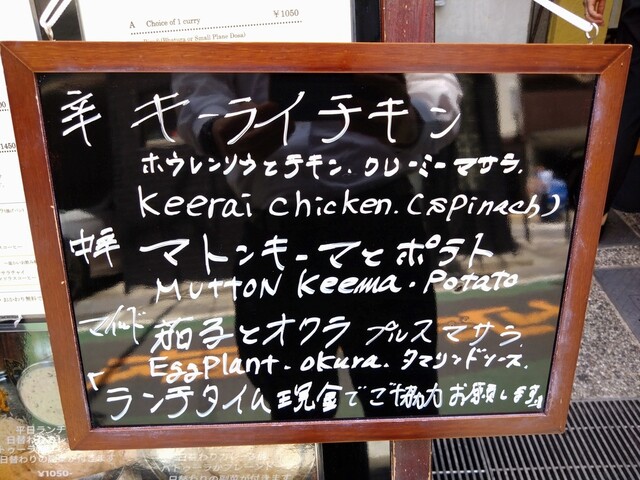 A Choice of 1 curry ¥1050
辛 キーライチキン
ホウレンソウとチキン. クリーミーマサラ.
Keerai chicken. (spinach)
中辛 マトンキーマとポテト
MUTTON Keema. Potato
マイルド 茄子とオクラ プルスマサラ.
Eggplant. okura. タマリンドソース.
ランチタイム現金でご協力お願いします。
平日ランチ
¥1050-